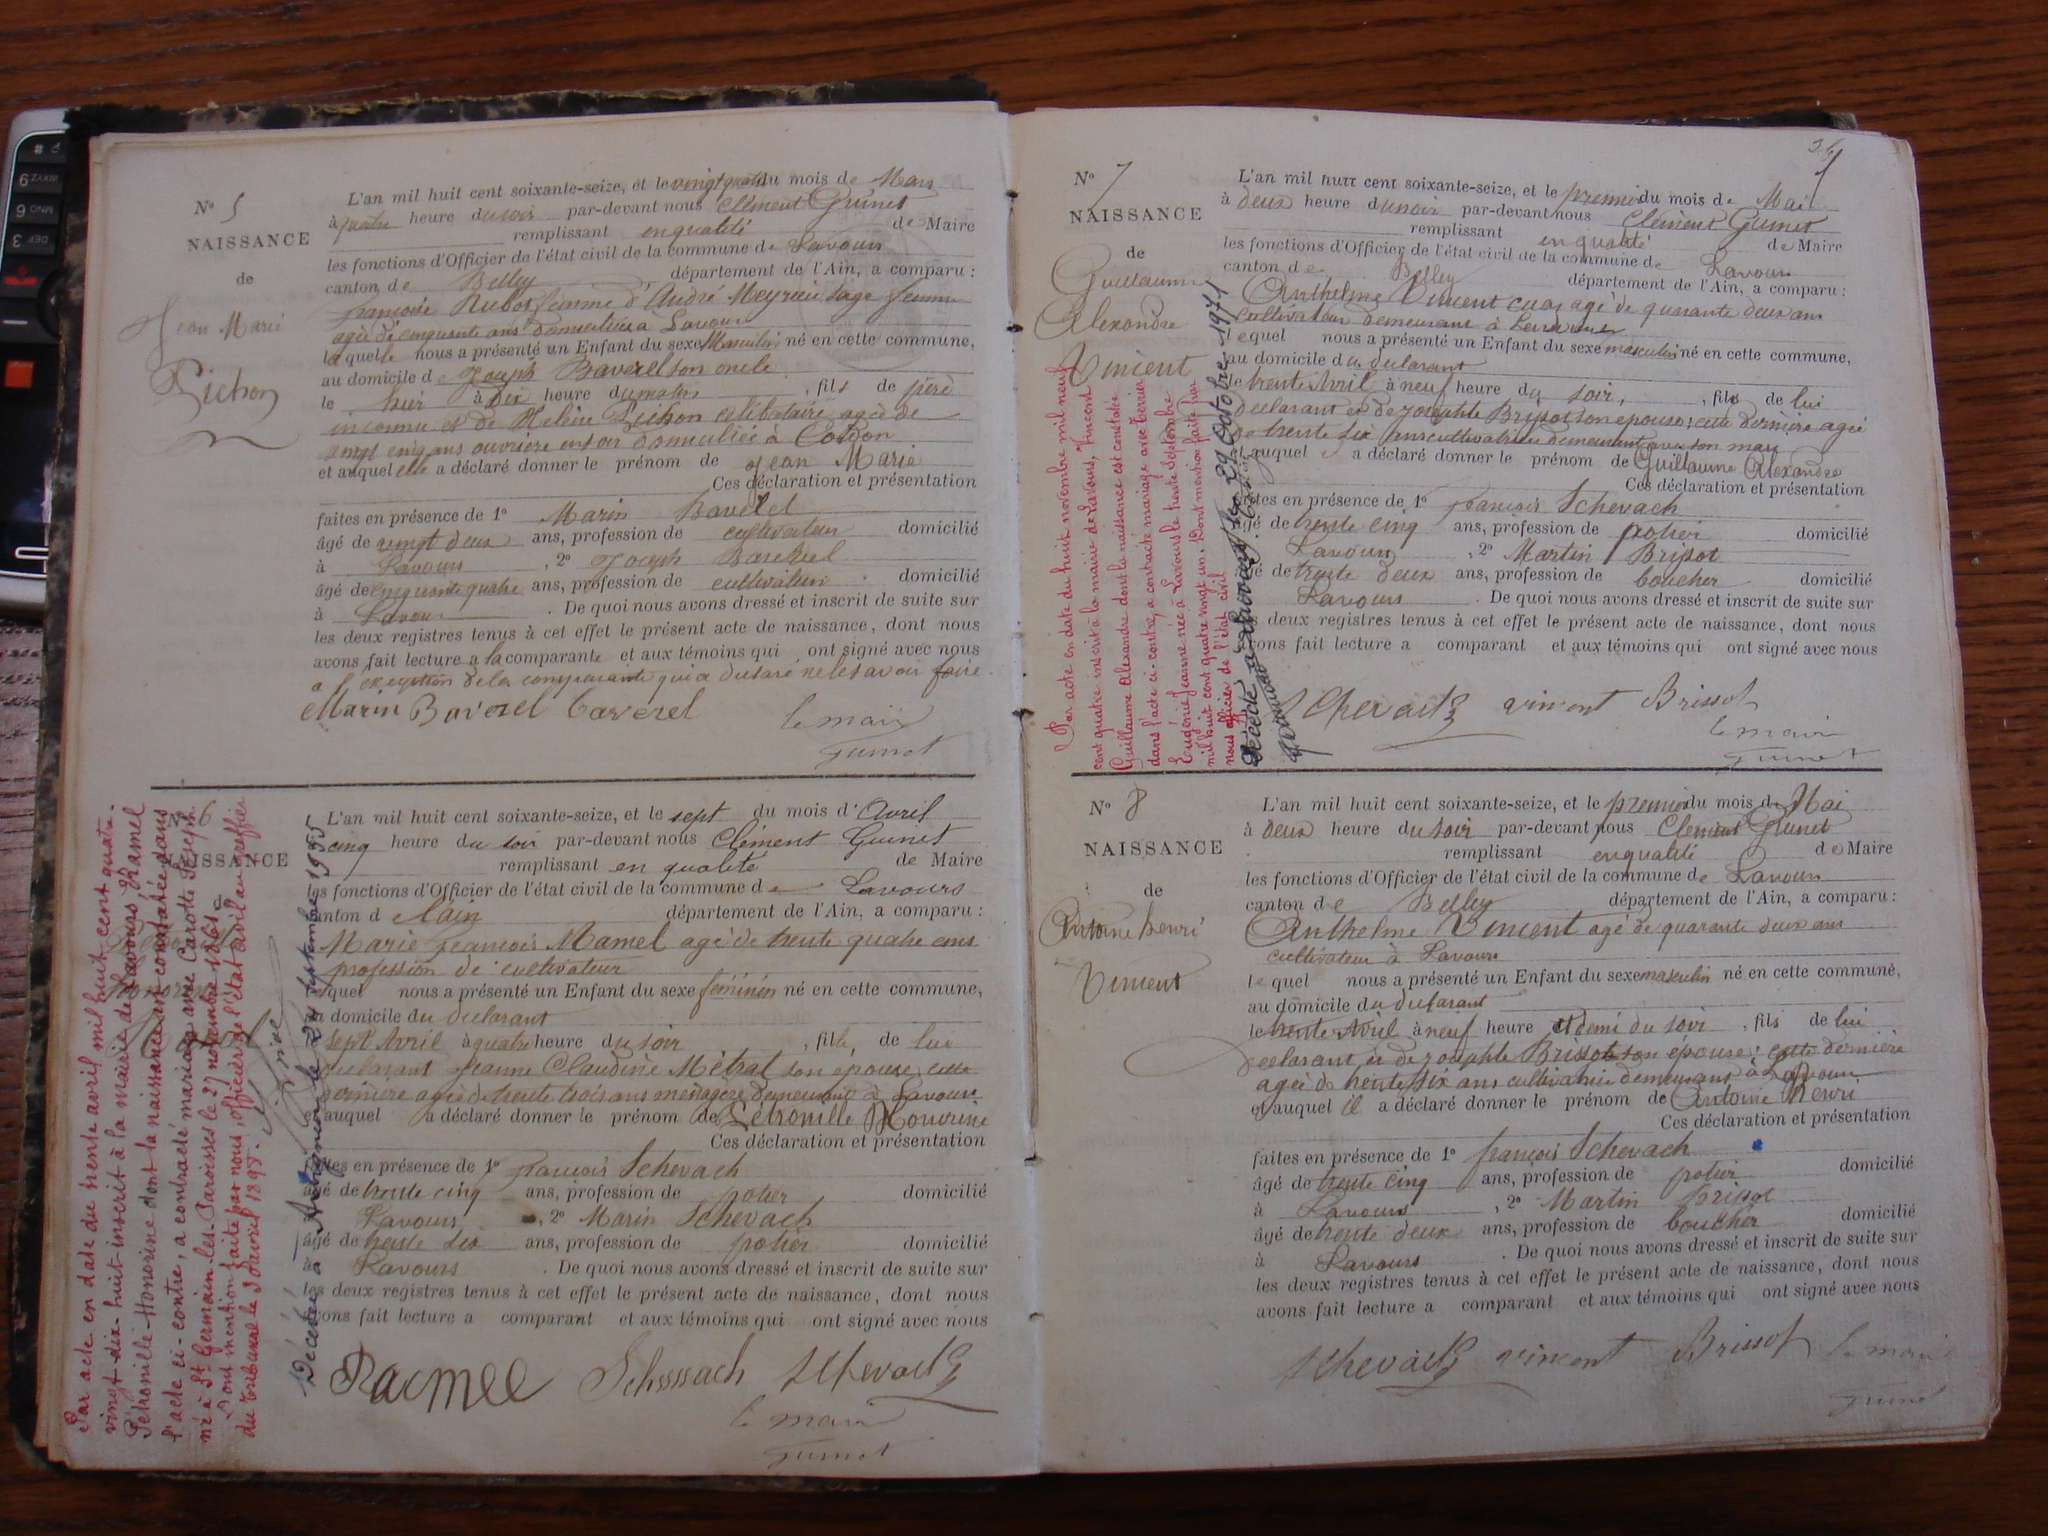 N° 5
NAISSANCE
de
Jean Marie
Pichon
L'an mil huit cent soixante-seize, et le vingt quatre du mois de Mars
à quatre heure du soir par-devant nous Clément Guinet
remplissant en qualité de Maire
les fonctions d'Officier de l'état civil de la commune de Lavours
canton de Belley département de l'Ain, a comparu :
françoise femme d'André Meyrieu sage femme
agée de cinquante ans domiciliée a Lavours
laquelle nous a présenté un Enfant du sexe Masculin né en cette commune,
au domicile de Joseph Baverel son oncle
le hier à dix heure du matin, fils de père
inconnu et de Helène Pichon celibataire agée de
vingt cinq ans ouvrière en soir domiciliée à Cordon
et auquel elle a déclaré donner le prénom de Jean Marie
Ces déclaration et présentation
faites en présence de 1° Marin Baverel
âgé de vingt deux ans, profession de cultivateur domicilié
à Lavours, 2° Joseph
âgé de cinquante quatre ans, profession de cultivateur domicilié
à Lavours. De quoi nous avons dressé et inscrit de suite sur
les deux registres tenus à cet effet le présent acte de naissance, dont nous
avons fait lecture a la comparante et aux témoins qui ont signé avec nous
a l'exception de la comparante qui a declaré ne le savoir faire
Marin Baverel Caverel
le maire
guinet
N° 6
NAISSANCE
Honorine
L'an mil huit cent soixante-seize, et le sept du mois d'Avril
cinq heure du soir par-devant nous Clément Guinet
remplissant en qualité de Maire
les fonctions d'Officier de l'état civil de la commune de Lavours
canton de lain département de l'Ain, a comparu :
Marie françois Mamel agé de trente quatre ans
profession de cultivateur
lequel nous a présenté un Enfant du sexe féminin né en cette commune,
au domicile du declarant
sept Avril à quatre heure du soir, fille de lui
declarant Jeanne Claudine Métral son epouse cette
dernière agée de trente trois ans menagère demeurant à Lavours
et auquel a déclaré donner le prénom de Pétronille Honorine
Ces déclaration et présentation
faites en présence de 1° françois Schevach
âgé de trente cinq ans, profession de potier domicilié
Lavours, 2° Marin Schevach
âgé de trente six ans, profession de potier domicilié
à Lavours. De quoi nous avons dressé et inscrit de suite sur
les deux registres tenus à cet effet le présent acte de naissance, dont nous
avons fait lecture a comparant et aux témoins qui ont signé avec nous
Schevach
le maire
guinet
Par acte en date du trente avril mil huit cent quatre-
vingt-dix-huit inscrit à la mairie de Lavours, Ramel
Pétronille-Honorine dont la naissance est constatée dans
l'acte ci-contre, a contracté mariage avec Carotte Joseph
né à St Germain-les-Paroisses le 27 novembre 1865.
Dont mention faite par nous, officier de l'état civil au greffier
du tribunal le 3 avril 1898.
Décédé à le 24 septembre 1955
N° 7
NAISSANCE
de
Guillaume
Alexandre
Vincent
L'an mil huit cent soixante-seize, et le premier du mois de Mai
à deux heure du soir par-devant nous Clément Guinet
remplissant en qualité de Maire
les fonctions d'Officier de l'état civil de la commune de Lavours
canton de Belley département de l'Ain, a comparu :
Anthelme Vincent agé de quarante deux ans
cultivateur demeurant à Lavours
lequel nous a présenté un Enfant du sexe masculin né en cette commune,
au domicile du declarant
le trente Avril à neuf heure du soir, fils de lui
declarant et de josephte Brissot son epouse; cette dernière agée
de trente six ans cultivatrice demeurant avec son mari
auquel a déclaré donner le prénom de Guillaume Alexandre
Ces déclaration et présentation
faites en présence de 1° françois Schevach
âgé de trente cinq ans, profession de potier domicilié
Lavours, 2° Martin Brissot
âgé de trente deux ans, profession de boucher domicilié
Lavours. De quoi nous avons dressé et inscrit de suite sur
les deux registres tenus à cet effet le présent acte de naissance, dont nous
avons fait lecture a comparant et aux témoins qui ont signé avec nous
Schevach vincent Brissot
le maire
guinet
Par acte en date du huit novembre mil neuf
cent quatre inscrit à la mairie de Lavours, Vincent
Guillaume Alexandre dont la naissance est constatée
dans l'acte ci-contre, a contracté mariage avec Cerrier
Eugénie Jeanne née à Lavours le trente Septembre
mil huit cent quatre vingt un. Dont mention faite par
nous officier de l'état civil
Décédé à Lavours le 29 Octobre 1971
N° 8
NAISSANCE
de
Antoine henri
Vincent
L'an mil huit cent soixante-seize, et le premier du mois de Mai
à deux heure du soir par-devant nous Clément Guinet
remplissant en qualité de Maire
les fonctions d'Officier de l'état civil de la commune de Lavours
canton de Belley département de l'Ain, a comparu :
Anthelme Vincent agé de quarante deux ans
cultivateur à Lavours
lequel nous a présenté un Enfant du sexe masculin né en cette commune,
au domicile du declarant
le trente Avril à neuf heure et demi du soir, fils de lui
declarant et de josephte Brissot son épouse; cette dernière
agée de trente six ans cultivatrice demeurant à Lavours
et auquel il a déclaré donner le prénom de Antoine Henri
Ces déclaration et présentation
faites en présence de 1° françois Schevach
âgé de trente cinq ans, profession de potier domicilié
à Lavours, 2° Martin Brissot
âgé de trente deux ans, profession de boucher domicilié
à Lavours. De quoi nous avons dressé et inscrit de suite sur
les deux registres tenus à cet effet le présent acte de naissance, dont nous
avons fait lecture a comparant et aux témoins qui ont signé avec nous
Schevach vincent Brissot le maire
guinet